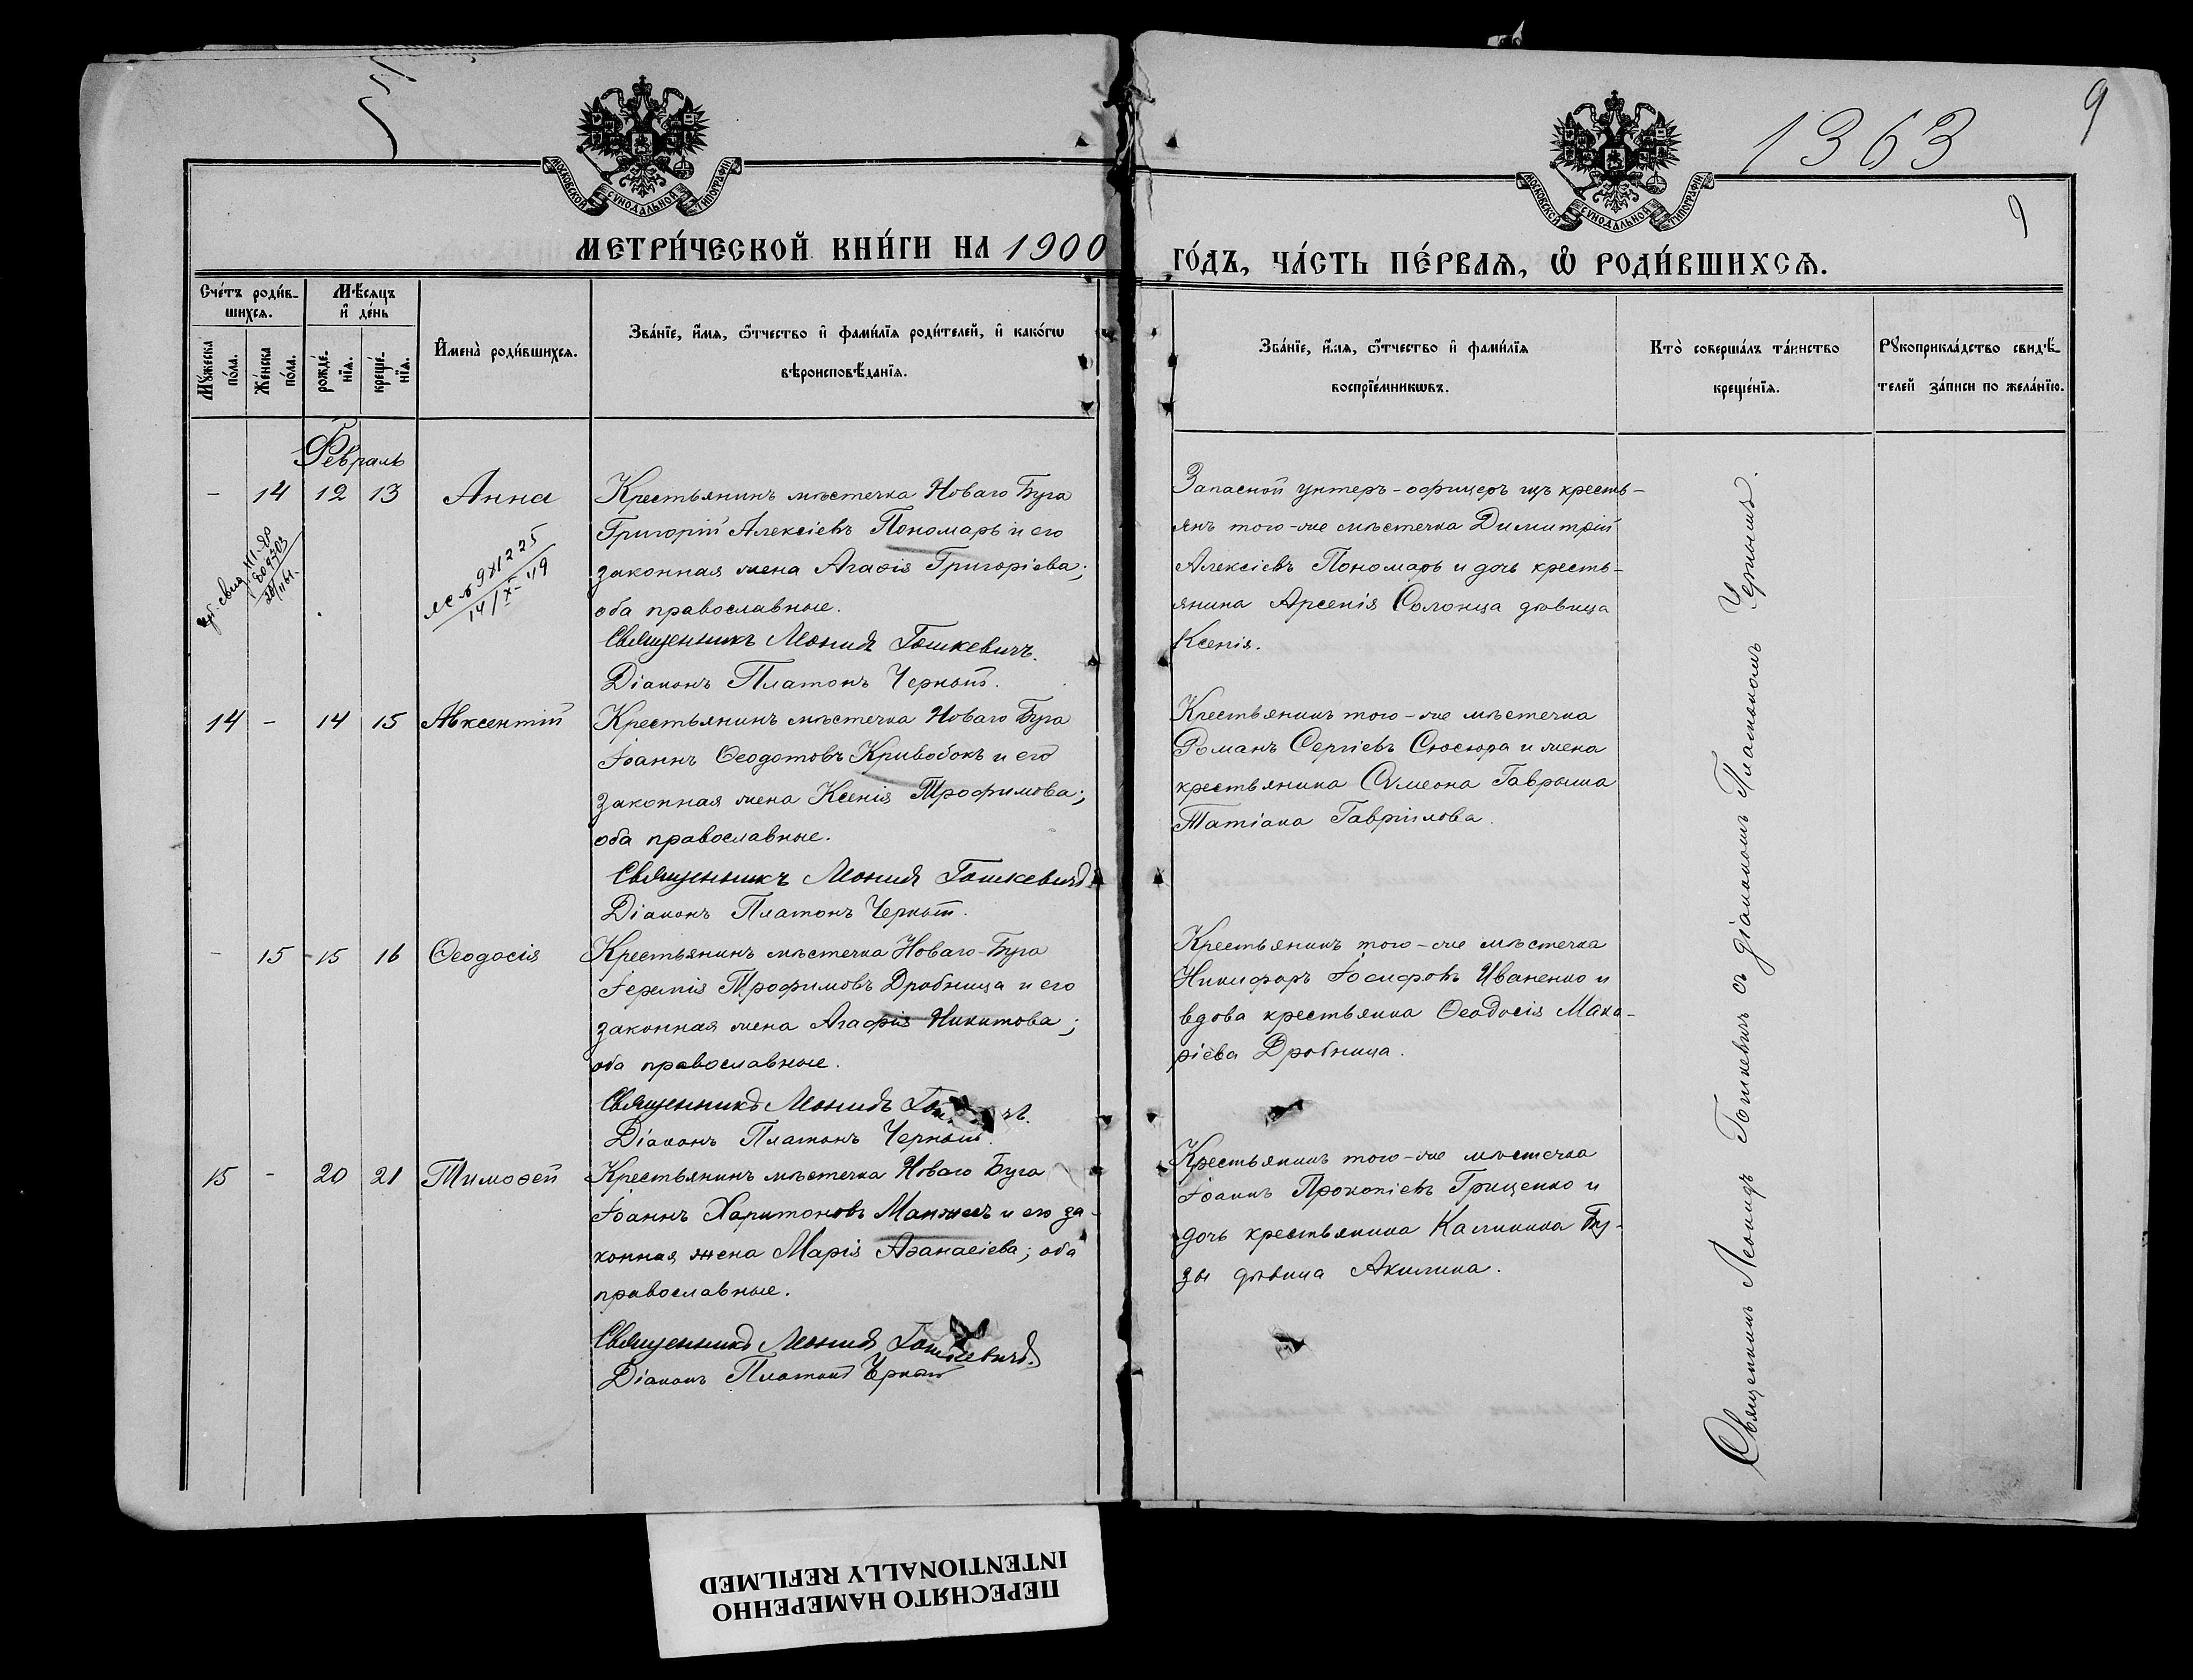 1363
9
9
МОСКОВСКОЙ СѴНОДАЛЬНОЙ ТИПОГРАФІИ
МОСКОВСКОЙ СѴНОДАЛЬНОЙ ТИПОГРАФІИ
МЕТРИ́ЧЕСКОЙ КНИ́ГИ НА 1900
ГО́ДЪ, ЧА́СТЬ ПЕ́РВАѦ, Ѽ РОДИ́ВШИХСѦ.
Сче́тъ роди́в-
шихсѧ.
Мѣ́сѧцъ
и҆ де́нь
Мꙋ́жеска
по́ла.
Же́нска
по́ла.
рожде́-
нїѧ.
креще́-
нїѧ.
И҆мена̀ роди́вшихсѧ.
Зва́нїе, и҆́мѧ, ѻ҆́тчество и҆ фами́лїѧ роди́телей, и҆ како́гѡ
вѣроисповѣ́данїѧ.
Зва́нїе, и҆́мѧ, ѻ҆́тчество и҆ фами́лїѧ
воспрїе́мникѡвъ.
Кто̀ соверша́лъ та́инство
креще́нїѧ.
Рꙋкоприкла́дство свидѣ́-
телей за́писи по жела́нїю.
Февраль
- 14 12 13 Анна
Крестьянинъ мѣстечка Новаго Буга
Григорій Алексіевъ Пономарь и его
законная жена Агаѳія Григоріева;
оба православные.
Священникъ Леонидъ Гошкевичъ.
Діаконъ Платонъ Черный.
Запасной унтеръ-офицеръ изъ кресть-
янъ того-же мѣстечка Димитрій
Алексіевъ Пономарь и дочь кресть-
янина Арсенія Солонца дѣвица
Ксенія.
14 - 14 15 Авксентій
Крестьянинъ мѣстечка Новаго Буга
Іоаннъ Ѳеодотовъ Кривобокъ и его
законная жена Ксенія Трофимова;
оба православные.
Священникъ Леонидъ Гошкевичъ
Діаконъ Платонъ Черный.
Крестьянинъ того-же мѣстечка
Романъ Сергіевъ Сюсюра и жена
крестьянина Симеона Гавриша
Татіана Гавріилова.
- 15 15 16 Ѳеодосія
Крестьянинъ мѣстечка Новаго-Буга
Іеремія Трофимовъ Дробница и его
законная жена Агафія Никитова;
оба православные.
Священникъ Леонидъ
Діаконъ Платонъ Черный.
Крестьянинъ того-же мѣстечка
Никифоръ Іосифовъ Иваненко и
вдова крестьянка Ѳеодосія Мака-
ріева Дробница.
15 - 20 21 Тимоѳей
Крестьянинъ мѣстечка Новаго Буга
Іоаннъ Харитоновъ и его за-
конная жена Марія Аѳанасіева; оба
православные.
Священникъ Леонидъ Гошкевичъ.
Діаконъ Платонъ Черный
Крестьянинъ того-же мѣстечка
Іоаннъ Прокопіевъ Гриценко и
дочь крестьянина Калиника Бу-
зы дѣвица Акилина.
Священникъ Леонидъ Гошкевичъ съ діакономъ Платономъ Чернымъ.
ПЕРЕСНЯТО НАМЕРЕННО
INTENTIONALLY REFILMED